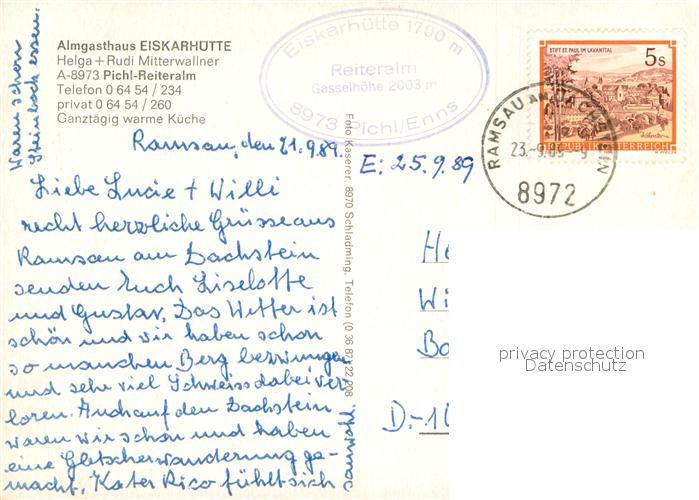 Almgasthaus EISKARHÜTTE
Helga + Rudi Mitterwallner
A-8973 Pichl-Reiteralm
Telefon 0 64 54 / 234
privat 0 64 54 / 260
Ganztägig warme Küche
Waren schon
Steinbock essen.
Eiskarhütte 1700 m
Reiteralm
Gasselhöhe 2003 m
8973 Pichl/Enns
STIFT ST. PAUL IM LAVANTTAL
5 s
REPUBLIK ÖSTERREICH
RAMSAU AM DACHSTEIN
23.-9.89-9
8972
Ramsau, den 21.9.89.
E: 25.9.89
Liebe Lucie + Willi
recht herzliche Grüsse aus
Ramsau am Dachstein
senden Euch Liselotte
und Gustav. Das Wetter ist
schön und wir haben schon
so manchen Berg bezwungen
und sehr viel Schweiss dabei ver
loren. Auch auf den Dachstein
waren wir schon und haben
eine Gletscherwanderung ge-
macht. Kater Rico fühlt sich
sauwohl.
Foto Kaserer, 8970 Schladming, Telefon (0 36 87) 22 008
He
Wi
Ba
D.-1
privacy protection
Datenschutz